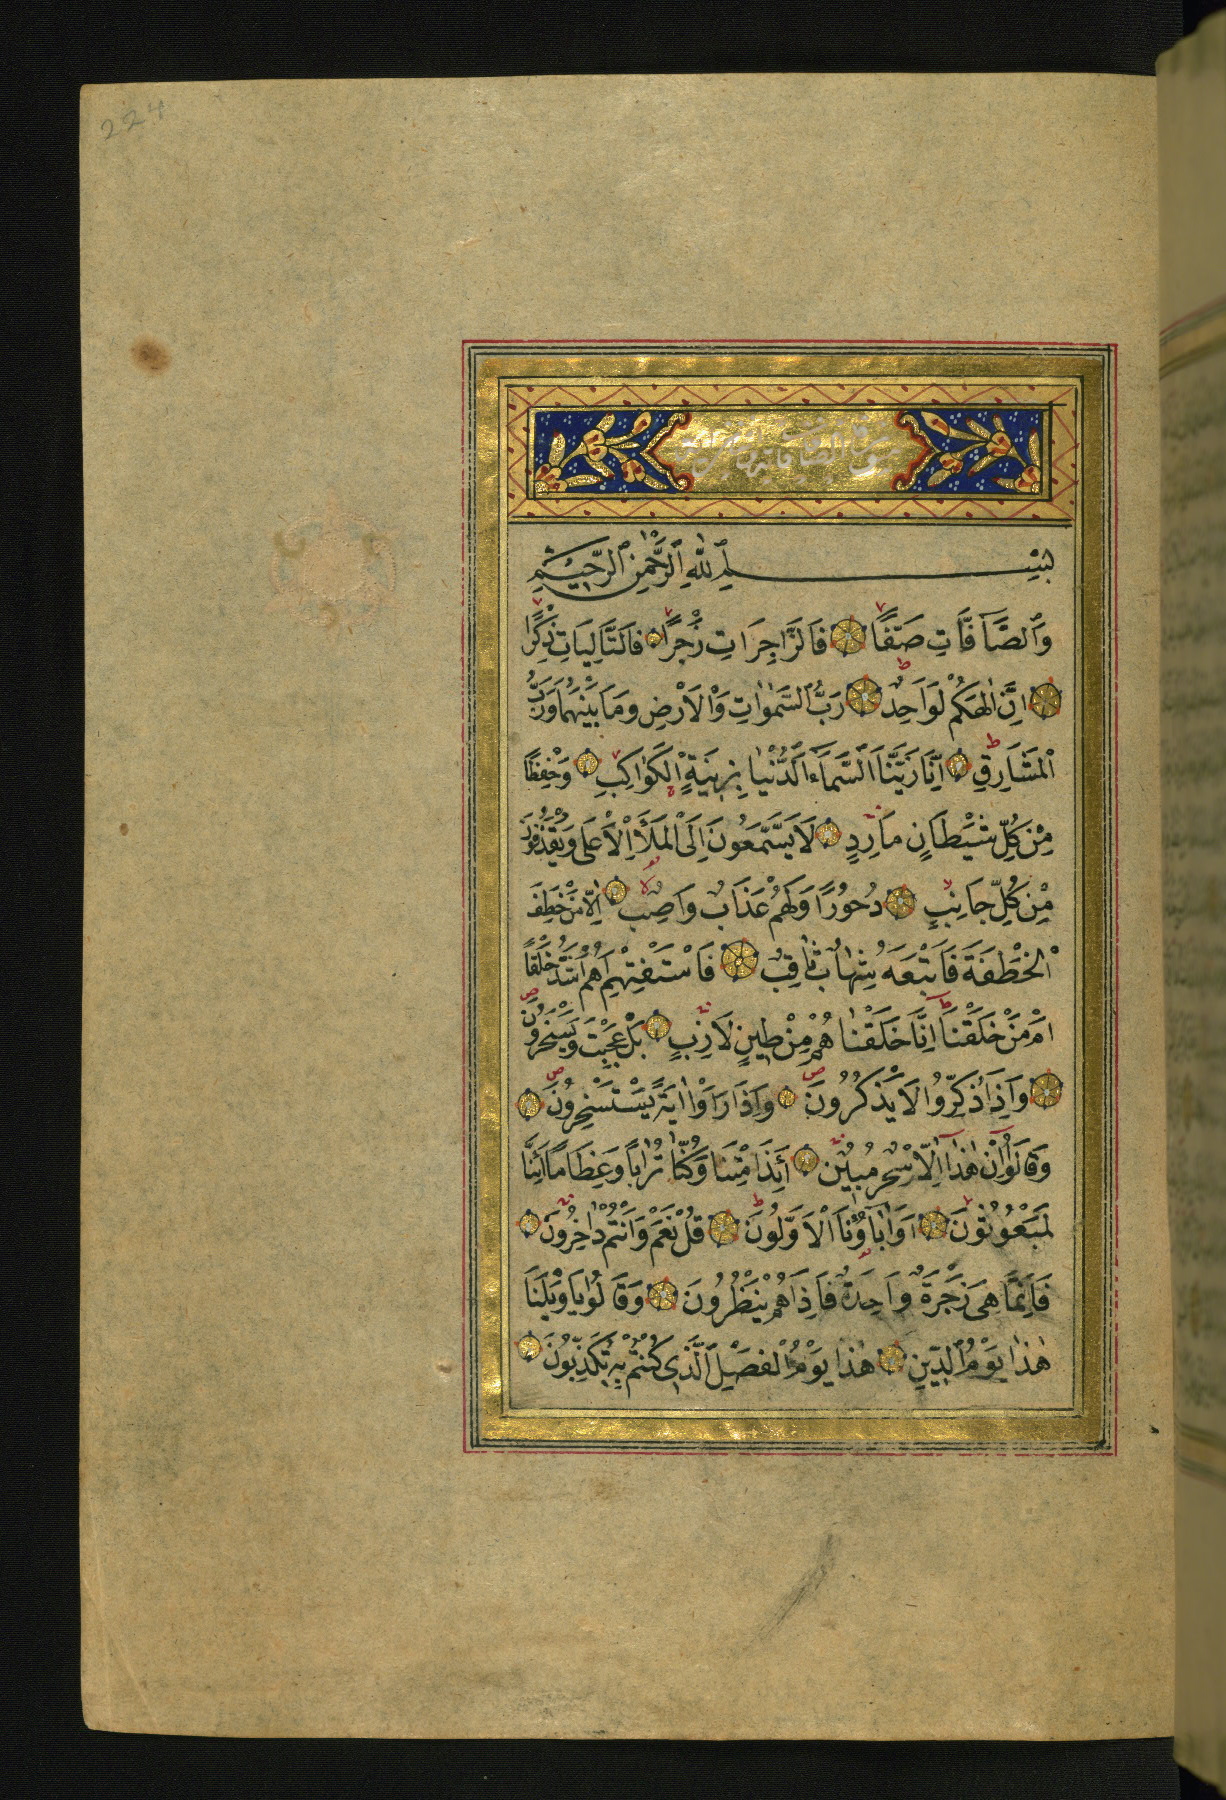 224
سورة الصافات
بِسْمِ ٱللّٰهِ ٱلرَّحْمٰنِ ٱلرَّحِيمِ
وَٱلصَّآفَّاتِ صَفًّا فَالزَّاجِرَاتِ زَجْرًا فَالتَّالِيَاتِ ذِكْرًا
اِنَّ اِلٰهَكُمْ لَوَاحِدٌ رَبُّ السَّمٰوَاتِ وَالْاَرْضِ وَمَا بَيْنَهُمَا وَرَبُّ
الْمَشَارِقِ اِنَّا زَيَّنَّا السَّمَآءَ الدُّنْيَا بِزِينَةٍ الْكَوَاكِبِ وَحِفْظًا
مِنْ كُلِّ شَيْطَانٍ مَارِدٍ لَا يَسَّمَّعُونَ اِلَى الْمَلَاِ الْاَعْلٰى وَيُقْذَفُونَ
مِنْ كُلِّ جَانِبٍ دُحُورًا وَلَهُمْ عَذَابٌ وَاصِبٌ اِلَّا مَنْ خَطِفَ
الْخَطْفَةَ فَاَتْبَعَهُ شِهَابٌ ثَاقِبٌ فَاسْتَفْتِهِمْ اَهُمْ اَشَدُّ خَلْقًا
اَمْ مَنْ خَلَقْنَا اِنَّا خَلَقْنَاهُمْ مِنْ طِينٍ لَازِبٍ بَلْ عَجِبْتَ وَيَسْخَرُونَ
وَاِذَا ذُكِّرُوا لَا يَذْكُرُونَ وَاِذَا رَاَوْا اٰيَةً يَسْتَسْخِرُونَ
وَقَالُوا اِنْ هٰذَا اِلَّا سِحْرٌ مُبِينٌ اَئِذَا مِتْنَا وَكُنَّا تُرَابًا وَعِظَامًا اَئِنَّا
لَمَبْعُوثُونَ اَوَاٰبَاؤُنَا الْاَوَّلُونَ قُلْ نَعَمْ وَاَنْتُمْ دَاخِرُونَ
فَاِنَّمَا هِيَ زَجْرَةٌ وَاحِدَةٌ فَاِذَا هُمْ يَنْظُرُونَ وَقَالُوا يَا وَيْلَنَا
هٰذَا يَوْمُ الدِّينِ هٰذَا يَوْمُ الْفَصْلِ الَّذِي كُنْتُمْ بِهِ تُكَذِّبُونَ